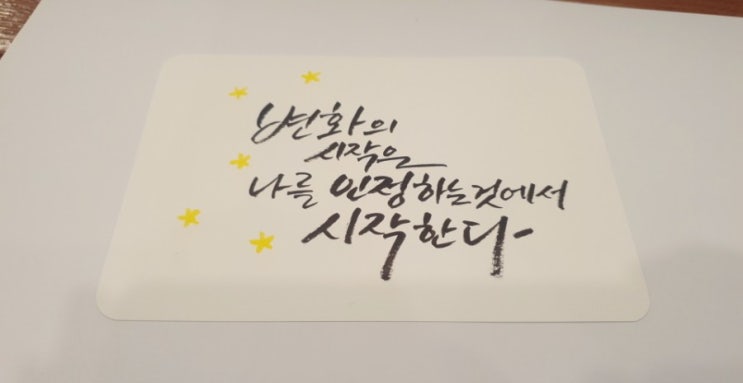 변화의
시작은
나를 인정하는것에서
시작한다